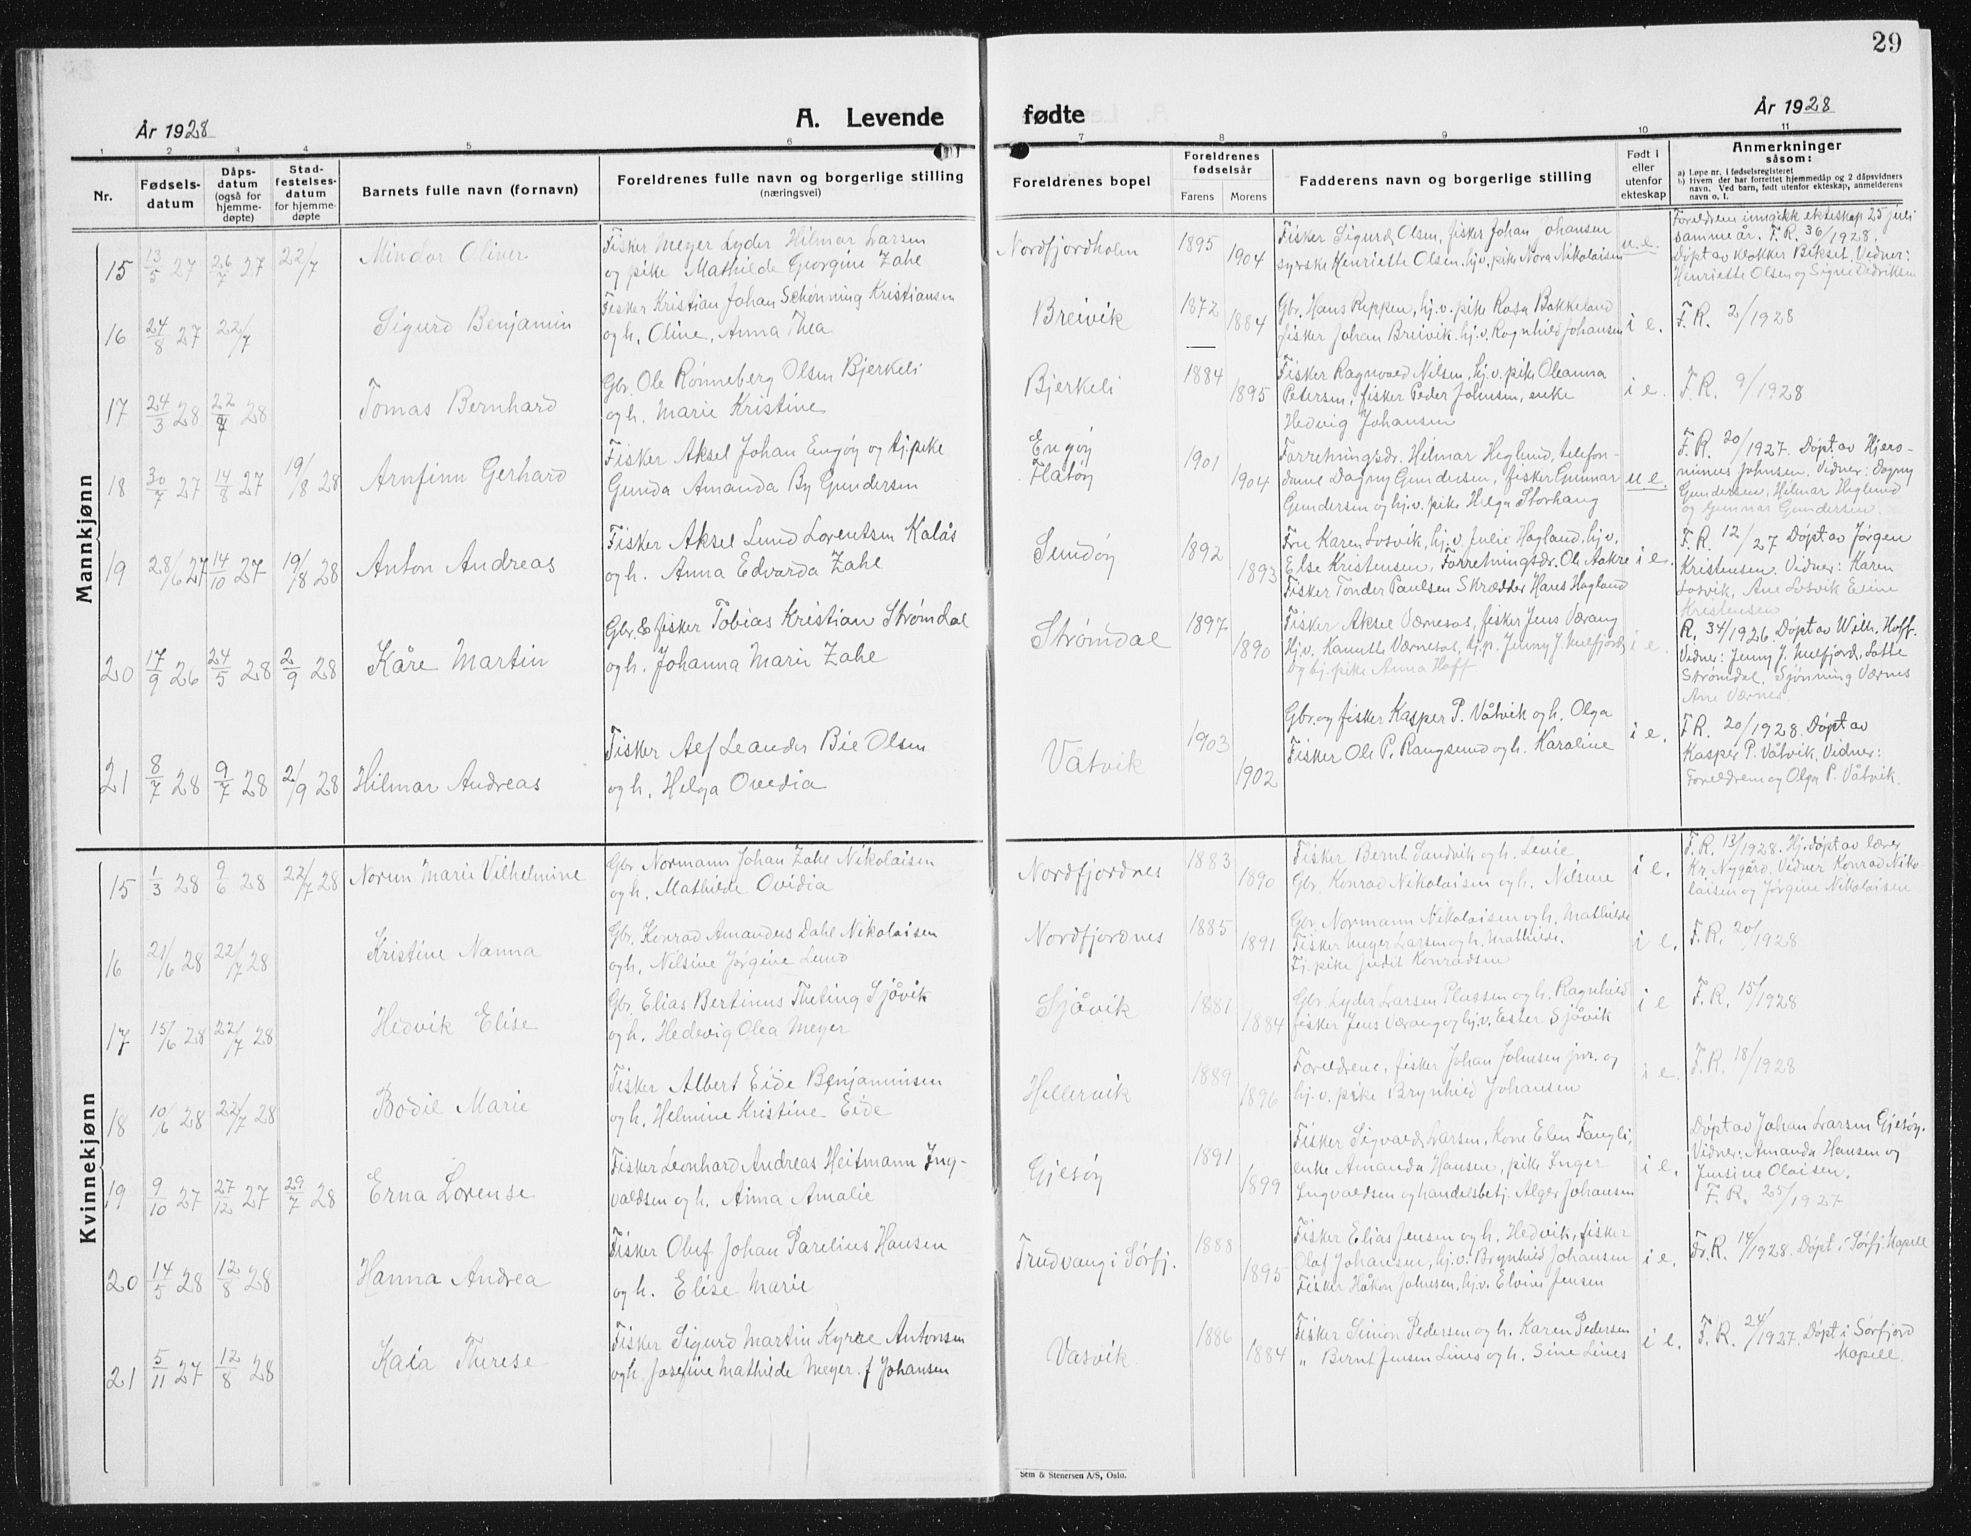 29
År 1928
A. Levende fødte
År 1928
1 2 3 4 5 6 7 8 9 10 11
Nr.
Fødsels-
datum
Dåps-
datum
(også for
hjemme-
døpte)
Stad-
festelses-
datum
for hjemme-
døpte
Barnets fulle navn (fornavn)
Foreldrenes fulle navn og borgerlige stilling
(næringsvei)
Foreldrenes bopel
Foreldrenes
fødselsår
Farens Morens
Fadderens navn og borgerlige stilling
Født i
eller
utenfor
ekteskap
Anmerkninger
såsom:
a) Løpe nr. i fødselsregisteret
b) Hvem der har forrettet hjemmedåp og 2 dåpsvidners
navn. Ved barn, født utenfor ekteskap, anmelderens
navn o. l.
Mannkjønn
15 13/5 27 26/7 27 22/7 Mindor Oliver
Fisker Meyer Lyder Hilmar Larsen
og pike Mathilde Georgine Zahl
Nordfjordholm 1895 1904
Fisker Sigurd Olsen, fisker Johan Johansen
Henriette Olsen, hj.v. pike Nora Nikolaisen
u.e.
Foreldrene inngikk ekteskap 25 juli
samme år. F.R. 36/1928.
Døpt av klokker Bikset. Vidner:
Henriette Olsen og Signe Dedriksen
16 24/8 27 22/7 Sigurd Benjamin
Fisker Kristian Johan Schønning Kristiansen
og h. Oline, Anna Thea
Breivik 1872 1884
Gbr. Hans Reppen, hj.v. pike Rosa Bakkeland
fisker Johan Breivik. hj.v. Ragnhild Johansen
i e.
F.R. 2/1928
17 24/3 28 22/7 28 Tomas Bernhard
Gbr. Ole Rønneberg Olsen Bjerkeli
og h. Marie Kristine
Bjerkeli 1884 1895
Fisker Ragnvald Nilsen, hj.v. pike Oleanna
Petersen, fisker Peder Johnsen, enke
Hedvig Johansen
i e.
F.R. 9/1928
18 30/7 27 14/8 27 19/8 28 Arnfinn Gerhard
Fisker Aksel Johan Engøy og tj. pike
Gunda Amanda By Gundersen
Engøy
Flatøy
1901 1904
Forretningsdr. Hilmar Heglund, telefon-
dame Dagny Gundersen, fisker Gunnar
Gundersen og hj.v. pike Helga Storhaug
u.e.
F.R. 20/1927. Døpt av Hjero-
nimus Johnsen. Vidner: Dagny
Gundersen, Hilmar Heglund
og Gunnar Gundersen.
19 28/6 27 14/10 27 19/8 28 Anton Andreas
Fisker Aksel Lund Lorentsen Kalås
og h. Anna Edvarda Zahl
Sundøy 1892 1893
Fru Karen Losvik, hj.v. Julie Hagland, hj.v.
Else Kristensen, Forretningsdr. Ole Aakre
Fisker Tønder Paulsen Skrædder Hans Hagland
i e.
F.R. 12/27 Døpt av Jørgen
Kristensen. Vidner: Karen
Losvik, Ane Losvik Eline
Kristensen
20 17/9 26 24/5 28 2/9 28 Kåre Martin
Gbr. & fisker Tobias Kristian Strømdal
og h. Johanna Marie Zahl
Strømdal 1897 1890
Fisker Aksel Værnesos, fisker Jens Værang
Hj.v. Kamilla Værnesos, hj.p. Jenny J. Melfjord,
og hj. pike Anna Hoff
i e.
R. 34/1926. Døpt av Wilh. Hoff.
Vidner: Jenny J. Melfjord, Lotte
Strømdal, Sjønning Værnes
Ane Værnes
21 8/7 28 9/7 28 2/9 28 Hilmar Andreas
Fisker Alf Leander Bie Olsen
og h. Helga Ovedia
Våtvik 1903 1902
Gbr. og fisker Kasper P. Våtvik og h. Olga
Fisker Ole P. Rangsund og h. Karoline
i e.
F.R. 20/1928. Døpt av
Kasper P. Våtvik. Vidner:
Foreldrene og Olga P. Våtvik.
Kvinnekjønn
15 1/3 28 9/6 28 22/7 28 Norun Marie Vilhelmine
Gbr. Normann Johan Zahl Nikolaisen
og h. Mathilde Ovidia
Nordfjordnes 1883 1890
Fisker Bernt Sandvik og h. Levie
Gbr. Konrad Nikolaisen og h. Nilsine
i e.
F.R. 13/1928. Hj.døpt av lærer
Kr. Nygård. Vidner Konrad Niko-
laisen og Jørgine Nikolaisen
16 21/6 28 22/7 28 Kristine Nanna
Gbr. Konrad Amandus Dahl Nikolaisen
og h. Nilsine Jørgine Lund
Nordfjordnes 1885 1891
Gbr. Normann Nikolaisen og h. Mathilde
Fisker Meyer Larsen og h. Mathilde.
Tj. pike Judit Konradsen
i e.
F.R. 20/1928
17 15/6 28 22/7 28 Hedvik Elise
Gbr. Elias Bertinus Theting Sjåvik
og h. Hedevig Olea Meyer
Sjåvik 1881 1884
Gbr. Lyder Larsen Plassen og h. Ragnhild
fisker Jens Værang og hj.v. Ester Sjåvik
i e
F.R. 15/1928
18 10/6 28 22/7 28 Bodil Marie
Fisker Albert Eide Benjaminsen
og h. Helmine Kristine Eide
Hellervik 1889 1896
Foreldrene, fisker Johan Johnsen jnr. og
hj.v. pike Brynhild Johansen
i e.
F.R. 18/1928
19 9/10 27 27/12 27 29/7 28 Erna Lorense
Fisker Leonhard Andreas Heitmann Ing-
valdsen og h. Anna Amalie
Gjesøy 1891 1899
Fisker Sigvald Larsen, Kone Elen Fangli,
enke Amanda Hansen, pike Inger
Ingvaldsen og handelsbetj. Alger Johansen
i e.
Døpt av Johan Larsen Gjesøy.
Vidner: Amanda Hansen og
Jensine Olaisen.
F.R. 25/1927
20 14/5 28 12/8 28 Hanna Andrea
Fisker Oluf Johan Parelius Hansen
og h. Elise Marie
Trudvang i Sørfj. 1888 1895
Fisker Elias Jensen og h. Hedvik, fisker
Olaf Johansen, hj.v. Brynhild Johansen
Fisker Håkon Johnsen, hj.v. Elvine Jensen
i e.
Fr. R. 14/1928. Døpt i Sørfj. kapell
21 5/11 27 12/8 28 Kaia Therese
Fisker Sigurd Martin Kyrre Antonsen
og h. Josefine Mathilde Meyer f. Johansen
Vasvik 1886 1884
Fisker Simon Pedersen og h. Karen Pedersen
" Bernt Jensen Lines og h. Sine Lines
i e.
F.R. 24/1927. Døpt i Sørfjord
kapell.
Sem & Stenersen A/S, Oslo.